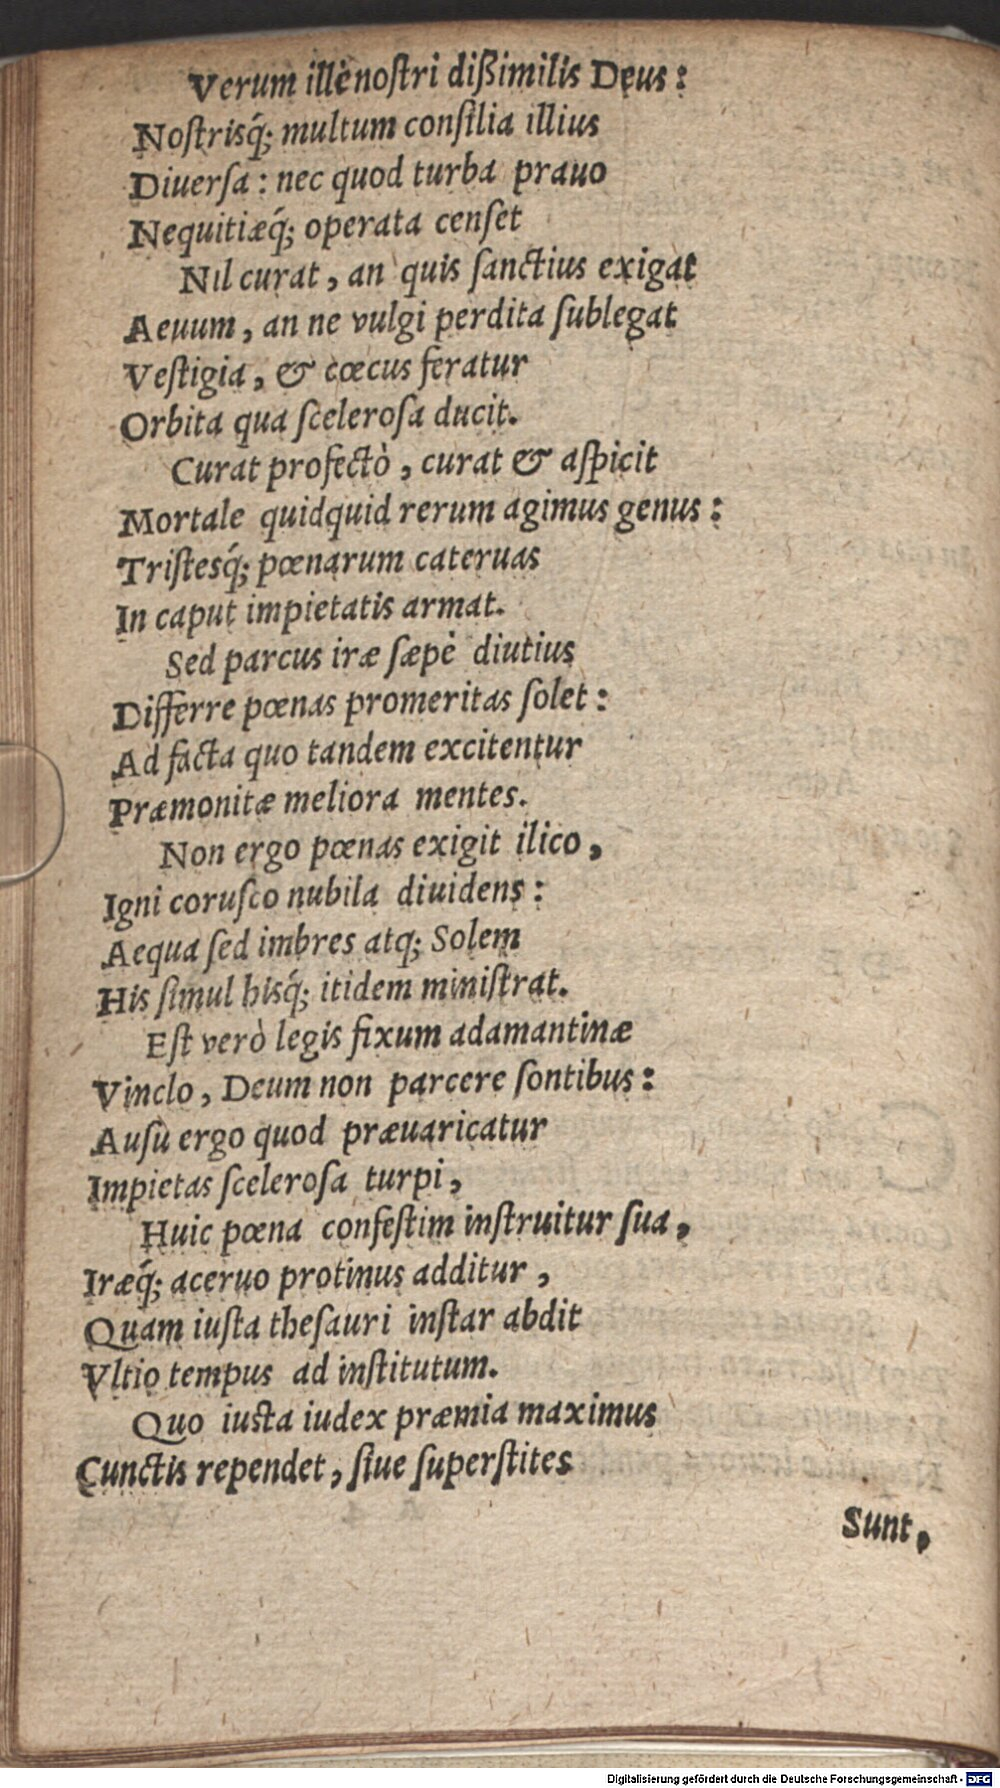 Verum ille nostri dißimilis Deus:
Nostrisq́; multum consilia illius
Diuersa: nec quod turba prauo
Nequitiæq́; operata censet
Nil curat, an quis sanctius exigat
Aeuum, an ne vulgi perdita sublegat
Vestigia, & cœcus feratur
Orbita qua scelerosa ducit.
Curat profectò, curat & aspicit
Mortale quidquid rerum agimus genus:
Tristesq́; pœnarum cateruas
In caput impietatis armat.
Sed parcus iræ sæpè diutius
Differre pœnas promeritas solet:
Ad facta quo tandem excitentur
Præmonitæ meliora mentes.
Non ergo pœnas exigit ilico,
Igni corusco nubila diuidens:
Aequa sed imbres atq; Solem
His simul hisq́; itidem ministrat.
Est verò legis fixum adamantinæ
Vinclo, Deum non parcere sontibus:
Ausù ergo quod præuaricatur
Impietas scelerosa turpi,
Huic pœna confestim instruitur sua,
Iræq́; aceruo protinus additur,
Quam iusta thesauri instar abdit
Vltio tempus ad institutum.
Quo iusta iudex præmia maximus
Cunctis rependet, siue superstites
Sunt,
Digitalisierung gefördert durch die Deutsche Forschungsgemeinschaft - DFG